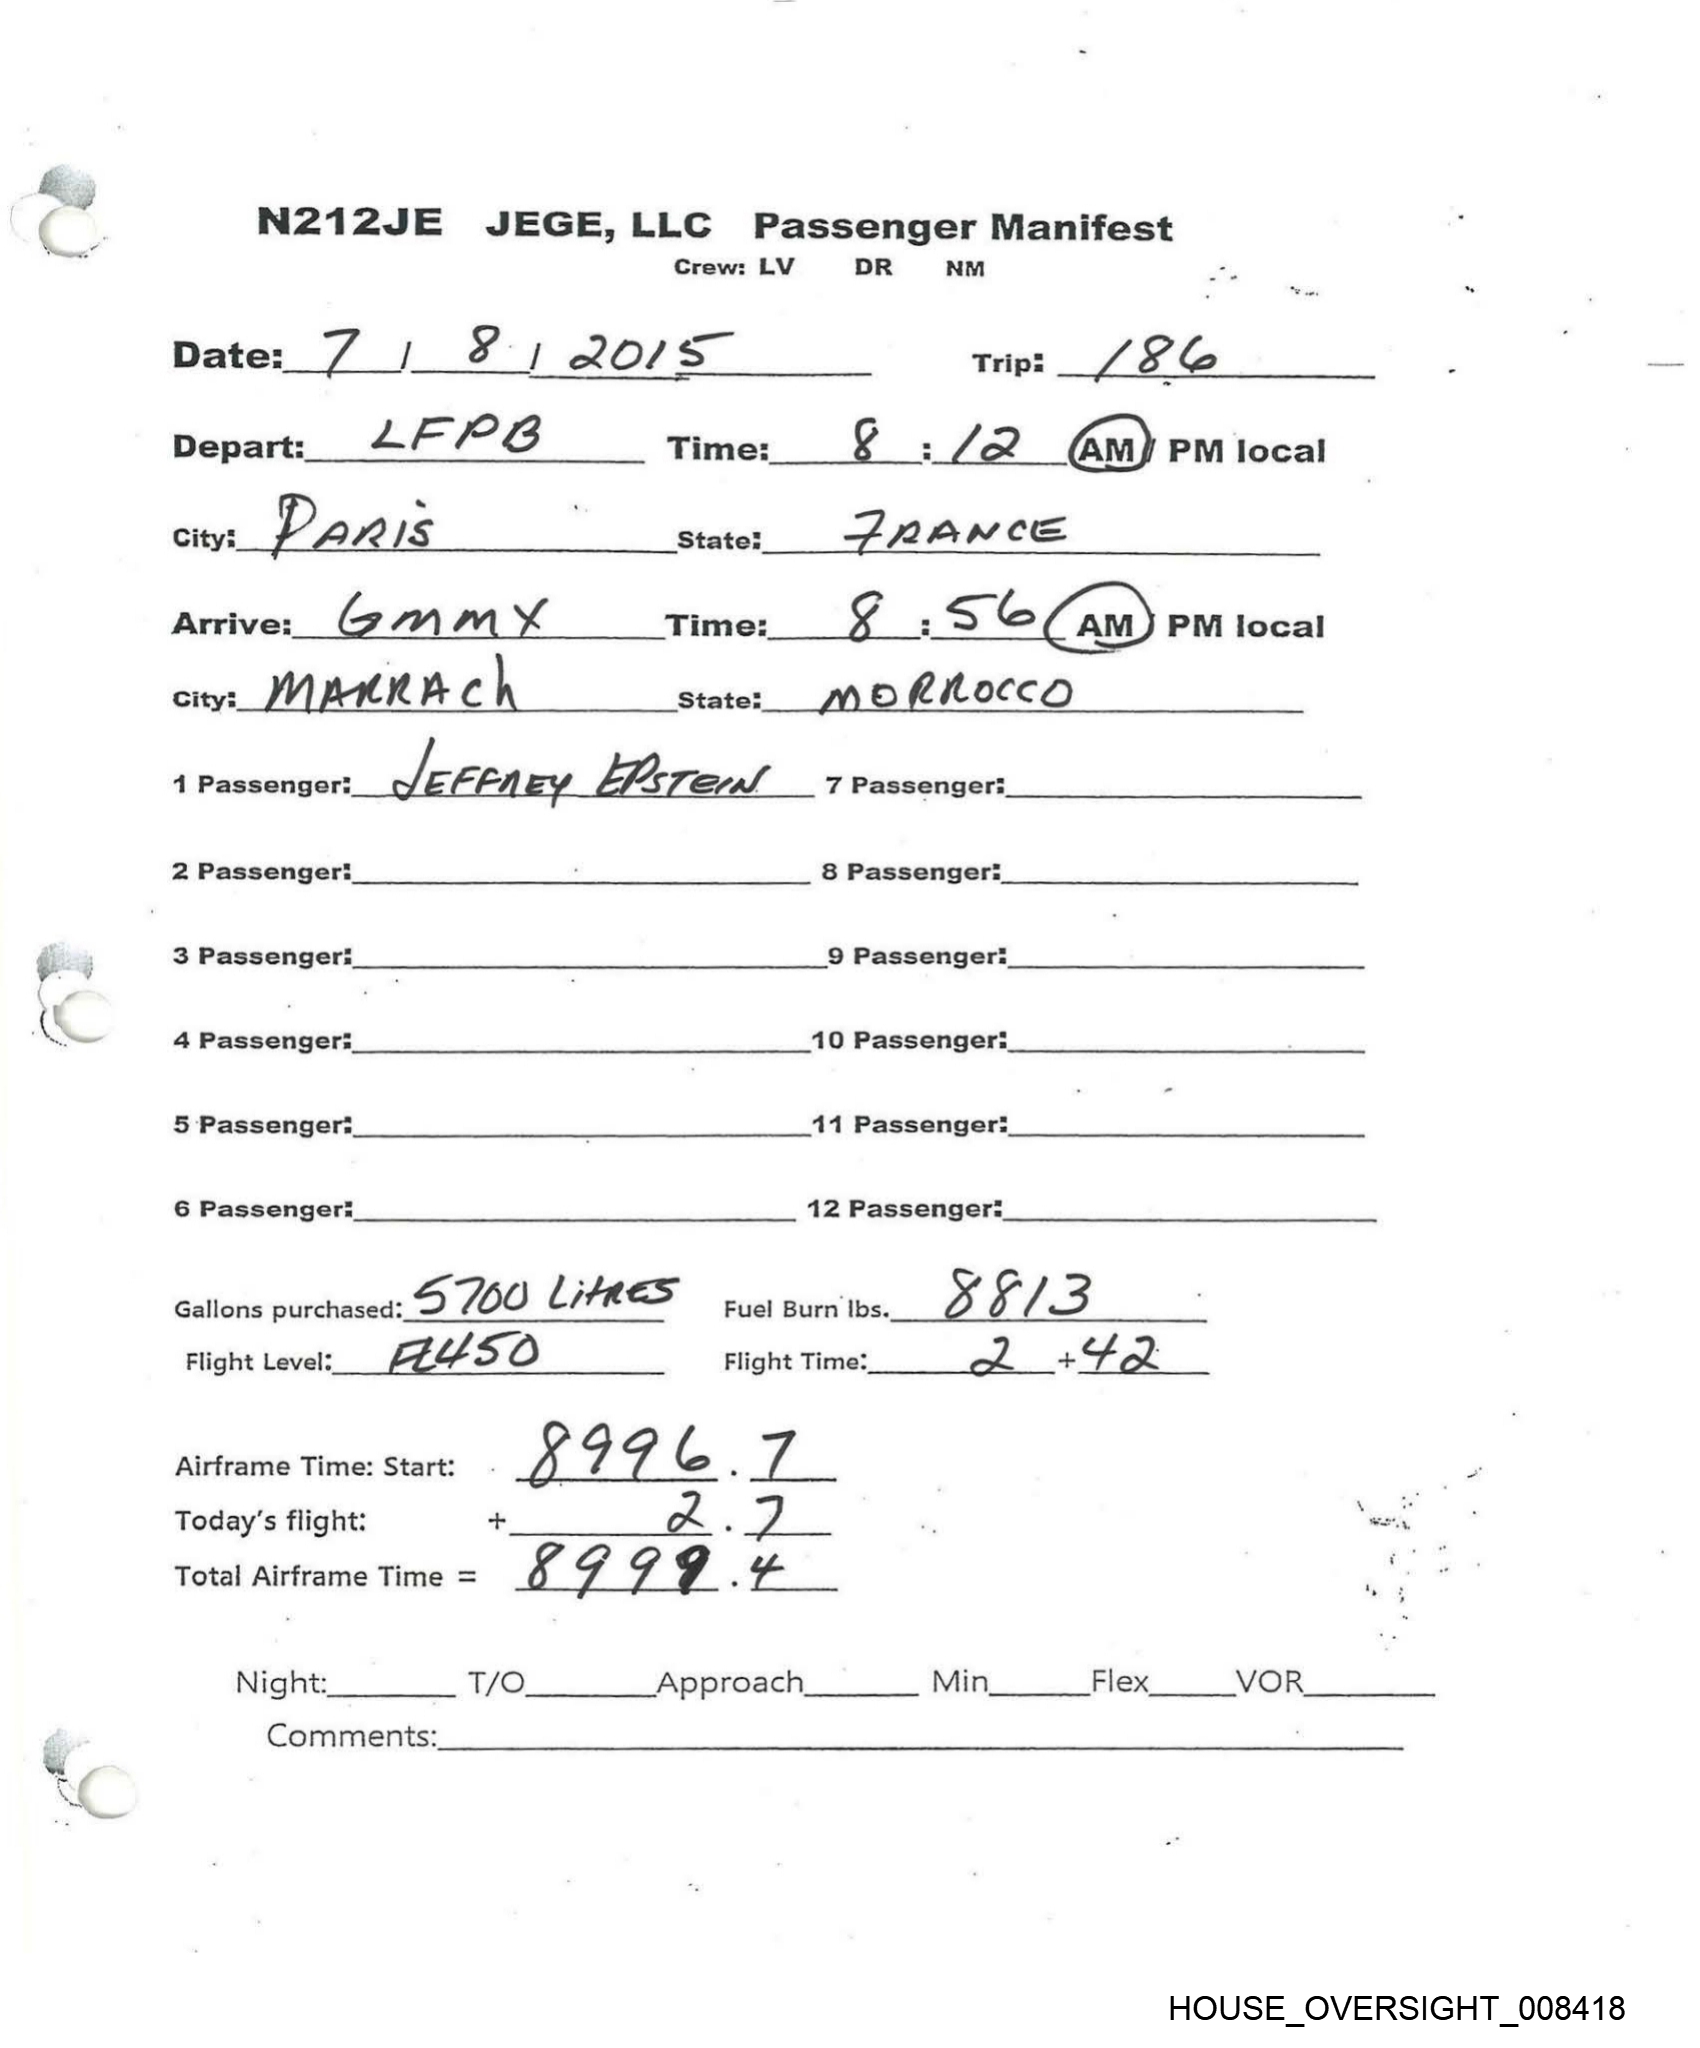 N212JE JEGE, LLC Passenger Manifest
Crew: LV DR NM
Date: 7 / 8 / 2015 Trip: 186
Depart: LFPB Time: 8 : 12 AM / PM local
City: PARIS State: FRANCE
Arrive: GMMX Time: 8 : 56 AM / PM local
City: MARRACH State: MORROCCO
1 Passenger: JEFFREY EPSTEIN 7 Passenger:
2 Passenger: 8 Passenger:
3 Passenger: 9 Passenger:
4 Passenger: 10 Passenger:
5 Passenger: 11 Passenger:
6 Passenger: 12 Passenger:
Gallons purchased: 5700 LITRES Fuel Burn lbs. 8813
Flight Level: FL450 Flight Time: 2 + 42
Airframe Time: Start: 8996.7
Today's flight: + 2.7
Total Airframe Time = 8999.4
Night: T/O Approach Min Flex VOR
Comments:
HOUSE_OVERSIGHT_008418